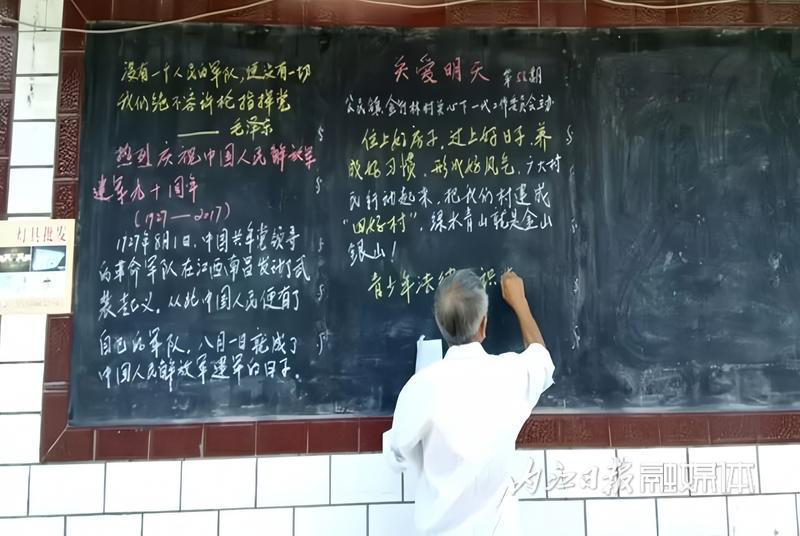 没有一个人民的军队,便没有一切
我们绝不容许枪指挥党
—— 毛泽东
热烈庆祝中国人民解放军
建军九十周年
(1927——2017)
1927年8月1日,中国共产党领导
的革命军队在江西南昌发动了武
装起义,从此中国人民便有了
自己的军队,八月一日就成了
中国人民解放军建军的日子。
关爱明天 第56期
公民镇金竹林村关心下一代工作委员会主办
住上好房子,过上好日子,养
成好习惯,形成好风气,广大村
民行动起来,把我们村建成
"四好村",绿水青山就是金山
银山!
青少年法律
灯具批发
内江日报融媒体